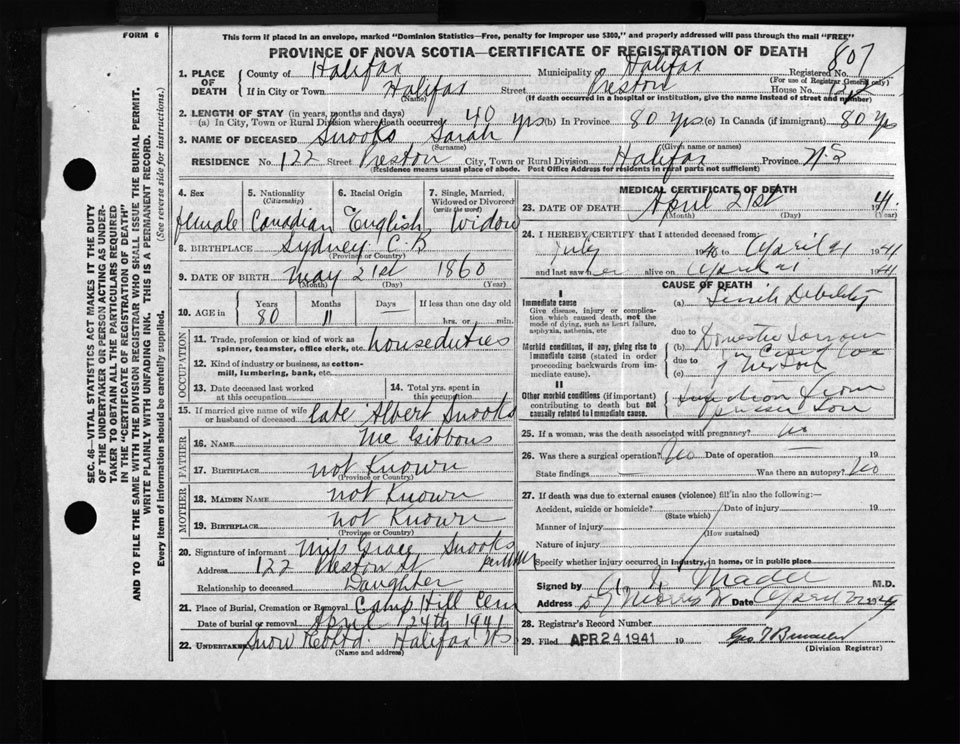 FORM 6
This form if placed in an envelope, marked "Dominion Statistics—Free, penalty for improper use $300," and properly addressed will pass through the mail "FREE"
PROVINCE OF NOVA SCOTIA—CERTIFICATE OF REGISTRATION OF DEATH
SEC. 46—VITAL STATISTICS ACT MAKES IT THE DUTY
OF THE UNDERTAKER OR PERSON ACTING AS UNDER-
TAKER TO OBTAIN ALL THE PARTICULARS REQUIRED
IN THE "CERTIFICATE OF REGISTRATION OF DEATH"
AND TO FILE THE SAME WITH THE DIVISION REGISTRAR WHO SHALL ISSUE THE BURIAL PERMIT.
WRITE PLAINLY WITH UNFADING INK. THIS IS A PERMANENT RECORD.
Every item of Information should be carefully supplied. (See reverse side for instructions.)
1. PLACE OF DEATH County of Halifax Municipality of Halifax Registered No. 807
(For use of Registrar General only)
If in City or Town Halifax Street Preston House No. 122
(Name) (If death occurred in a hospital or institution, give the name instead of street and number)
2. LENGTH OF STAY (in years, months and days)
(a) In City, Town or Rural Division where death occurred 40 yrs (b) In Province 80 yrs (c) In Canada (if immigrant) 80 yrs
3. NAME OF DECEASED Snooks Sarah
(Surname) (Given name or names)
RESIDENCE No. 122 Street Preston City, Town or Rural Division Halifax Province N.S
(Residence means usual place of abode. Post Office Address for residents in rural parts not sufficient)
4. Sex 5. Nationality (Citizenship) 6. Racial Origin 7. Single, Married, Widowed or Divorced (write the word)
Female Canadian English Widow
8. BIRTHPLACE Sydney C.B
(Province or Country)
9. DATE OF BIRTH May 21st 1860
(Month) (Day) (Year)
10. AGE in Years Months Days If less than one day old
80 11 — hrs. or min.
OCCUPATION
11. Trade, profession or kind of work as spinner, teamster, office clerk, etc. houseduties
12. Kind of industry or business, as cotton-mill, lumbering, bank, etc.
13. Date deceased last worked at this occupation
14. Total yrs. spent in this occupation
15. If married give name of wife or husband of deceased late Albert Snooks
FATHER
16. NAME Mc Gibbons
17. BIRTHPLACE not Known
(Province or Country)
MOTHER
18. MAIDEN NAME not Known
19. BIRTHPLACE not Known
(Province or Country)
20. Signature of informant Miss Grace Snooks
Address 122 Preston St
Relationship to deceased Daughter
21. Place of Burial, Cremation or Removal Camp Hill Cem
Date of burial or removal April 24th 1941
22. UNDERTAKER Snow Halifax NS
(Name and address)
MEDICAL CERTIFICATE OF DEATH
23. DATE OF DEATH April 21st 1941
(Month) (Day) (Year)
24. I HEREBY CERTIFY that I attended deceased from:
July 1940 to April 21 1941
and last saw her alive on April 21 1941
CAUSE OF DEATH
I
Immediate cause
Give disease, injury or complication which caused death, not the mode of dying, such as heart failure, asphyxia, asthenia, etc
(a) Senile Debility
due to
Morbid conditions, if any, giving rise to immediate cause (stated in order proceeding backwards from immediate cause).
(b) Domestic
due to
(c)
II
Other morbid conditions (if important) contributing to death but not causally related to immediate cause.
25. If a woman, was the death associated with pregnancy? no
26. Was there a surgical operation? No Date of operation —
State findings — Was there an autopsy? No
27. If death was due to external causes (violence) fill in also the following:—
Accident, suicide or homicide? Date of injury 19
(State which)
Manner of injury
(How sustained)
Nature of injury
Specify whether injury occurred in industry, in home, or in public place
Signed by Mader M.D.
Address 57 Morris St Date April
28. Registrar's Record Number
29. Filed APR 24 1941 19
(Division Registrar)